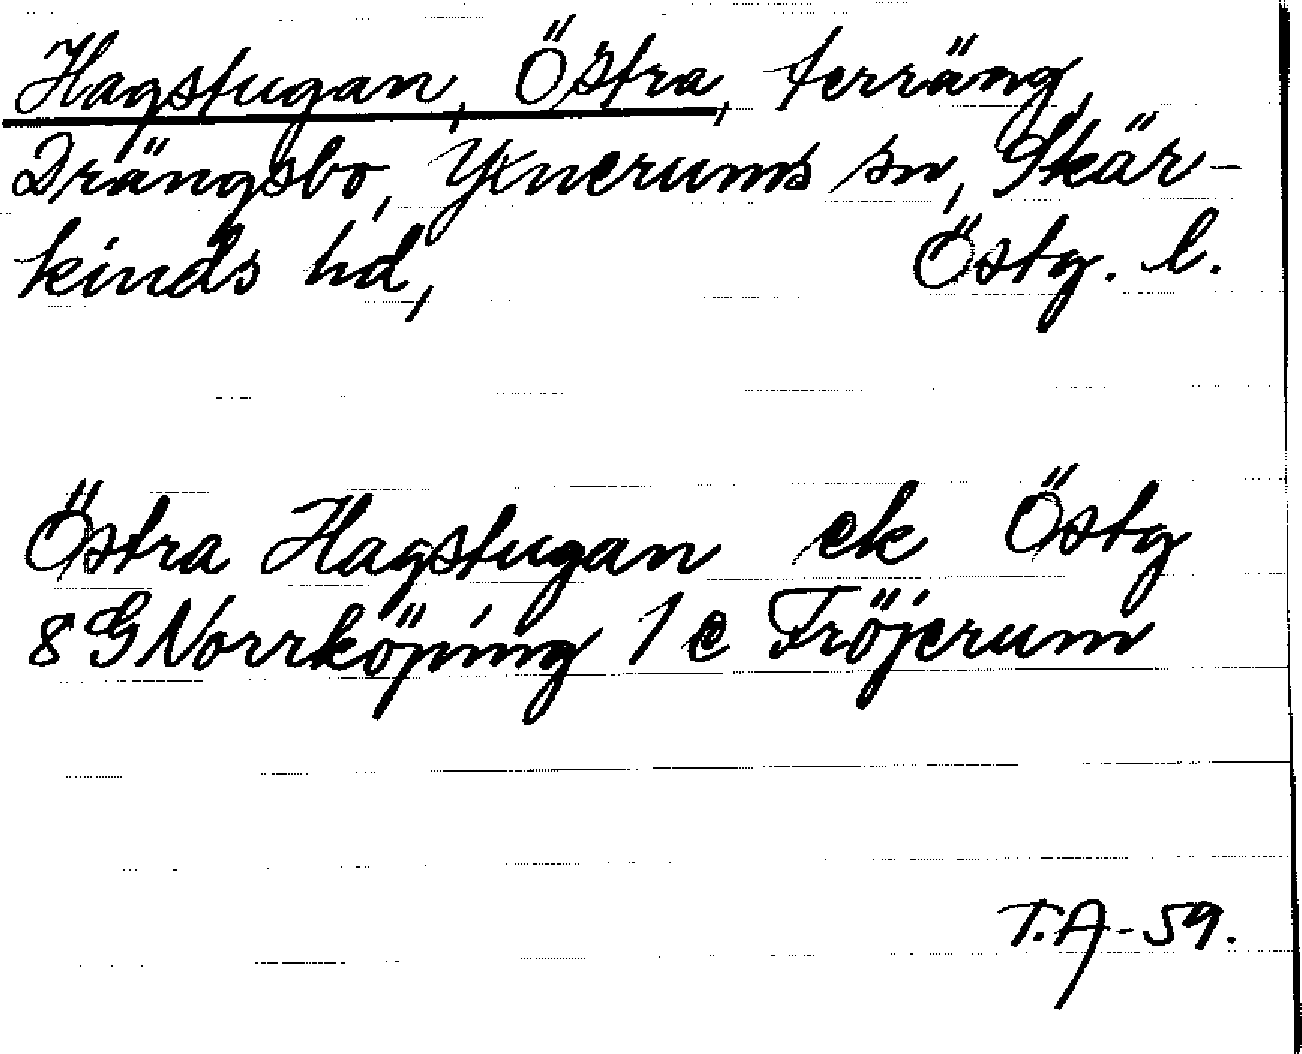 Hagstugan, Östra, terräng,
Drängsbo, Yxnerums sn, Skär-
kinds hd, Östg. l.
Östra Hagstugan ek Östg
8 G Norrköping 1 e Fröjerum
T.A-59.